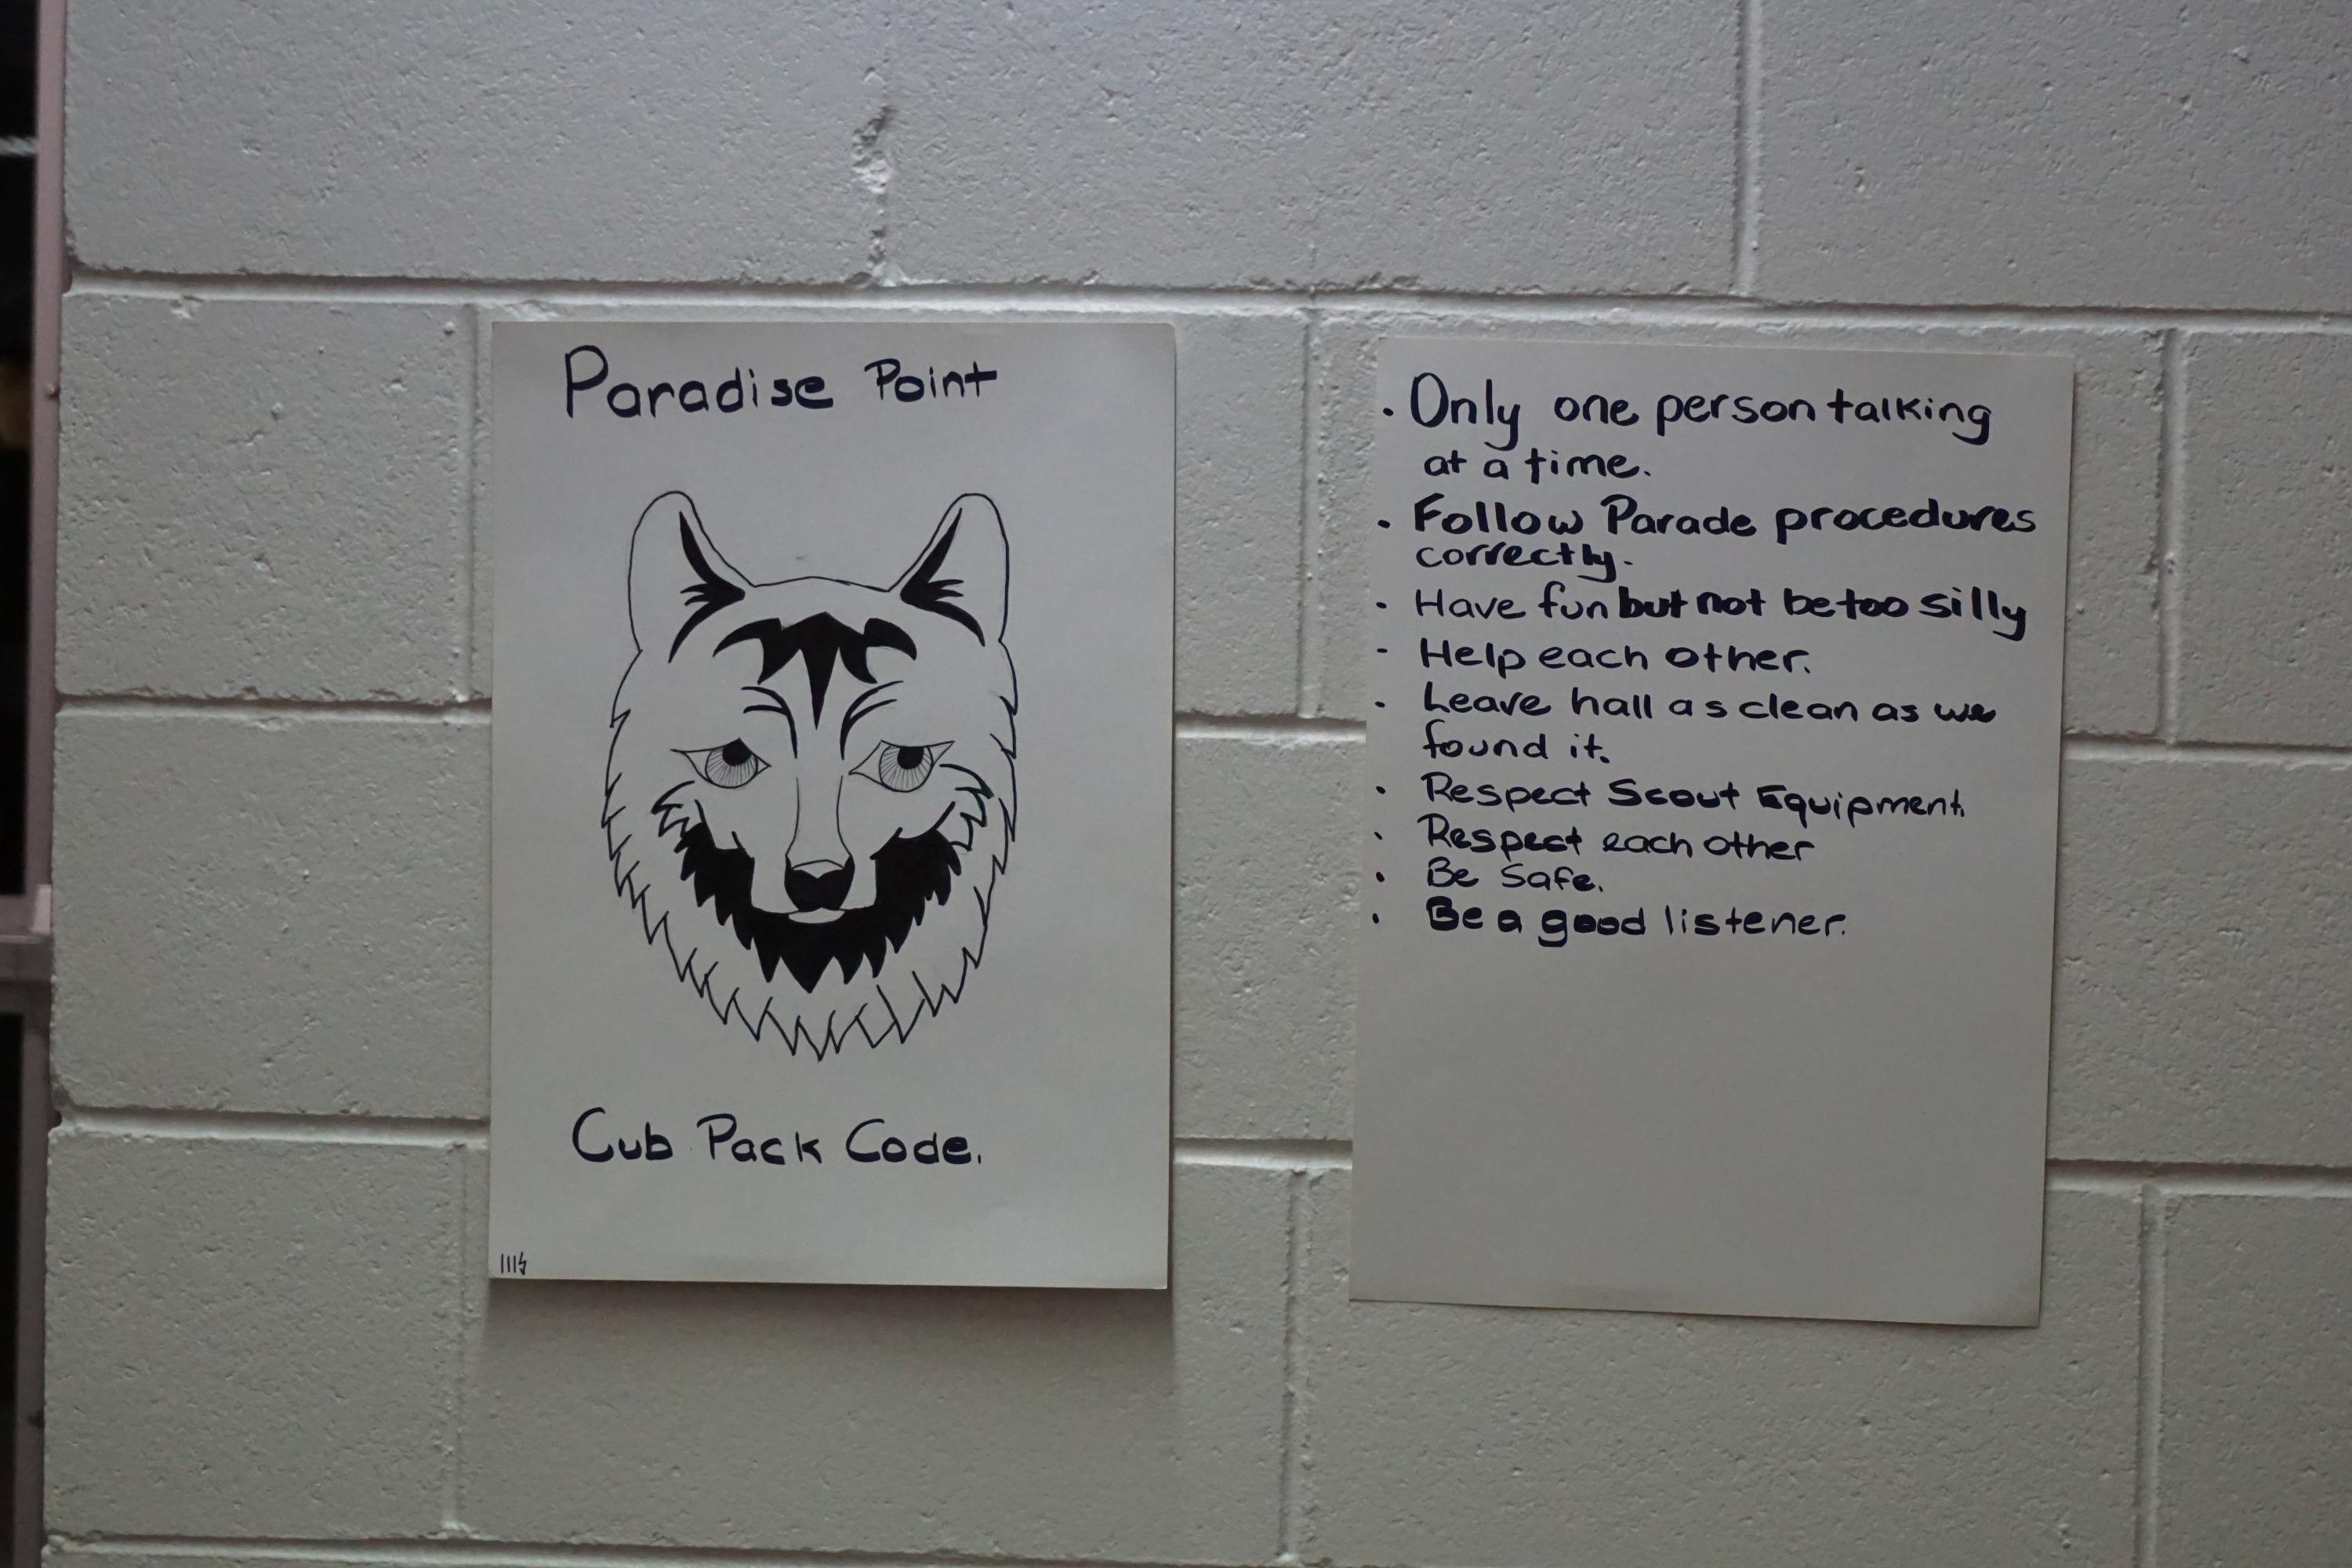 Paradise Point
Cub Pack Code.
• Only one person talking
at a time.
• Follow Parade procedures
correctly.
• Have fun but not be too silly
- Help each other.
• Leave hall as clean as we
found it.
• Respect Scout Equipment.
• Respect each other
• Be Safe.
• Be a good listener.